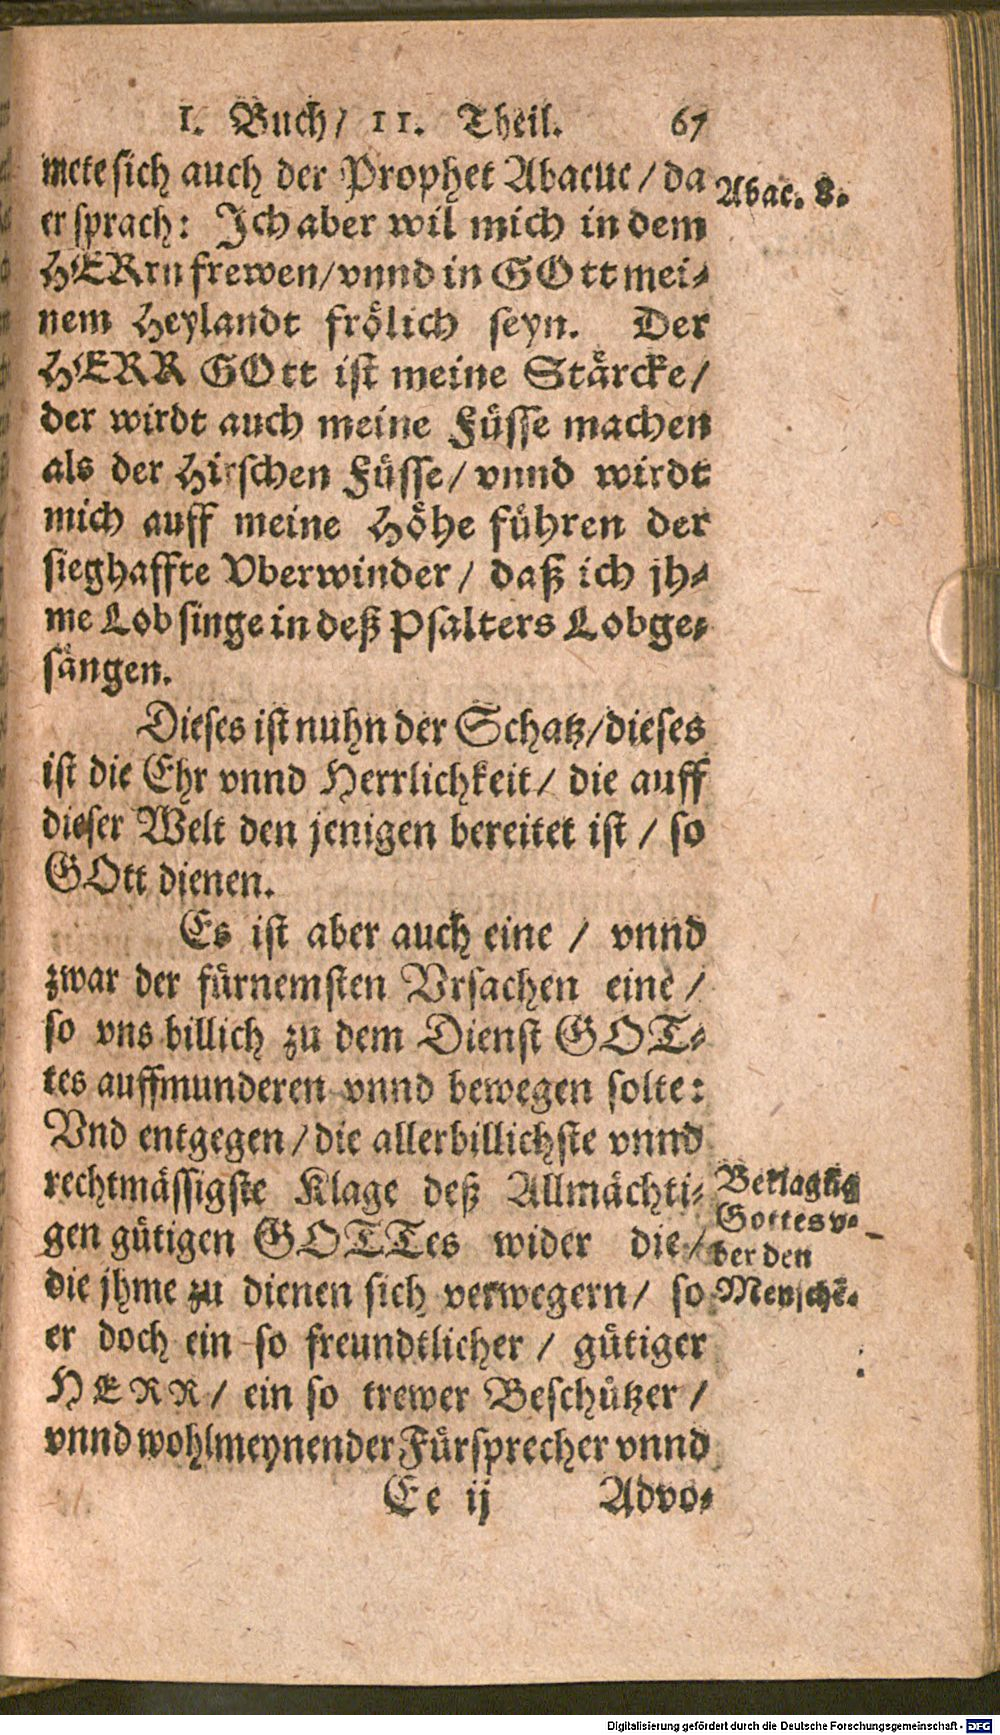 I. Buch/ II. Theil. 67
mete sich auch der Prophet Abacuc/ da
er sprach: Ich aber wil mich in dem
HERrn frewen/ vnnd in GOtt mei-
nem Heylandt frölich seyn. Der
HERR GOtt ist meine Stärcke/
der wirdt auch meine Füsse machen
als der Hirschen Füsse/ vnnd wirdt
mich auff meine Höhe führen der
sieghaffte Vberwinder/ daß ich jh-
me Lob singe in deß Psalters Lobge-
sängen.
Dieses ist nuhn der Schatz/ dieses
ist die Ehr vnnd Herrlichkeit/ die auff
dieser Welt den jenigen bereitet ist/ so
GOtt dienen.
Es ist aber auch eine/ vnnd
zwar der fürnemsten Vrsachen eine/
so vns billich zu dem Dienst GOT-
tes auffmunderen vnnd bewegen solte:
Vnd entgegen/ die allerbillichste vnnd
rechtmässigste Klage deß Allmächti-
gen gütigen GOTTes wider die/
die jhme zu dienen sich verwegern/ so
er doch ein so freundtlicher/ gütiger
HERR/ ein so trewer Beschützer/
vnnd wohlmeynender Fürsprecher vnnd
Ee ij Advo-
Abac. 8.
Beklagũg
Gottes v-
ber den
Menschẽ.
Digitalisierung gefördert durch die Deutsche Forschungsgemeinschaft - DFG